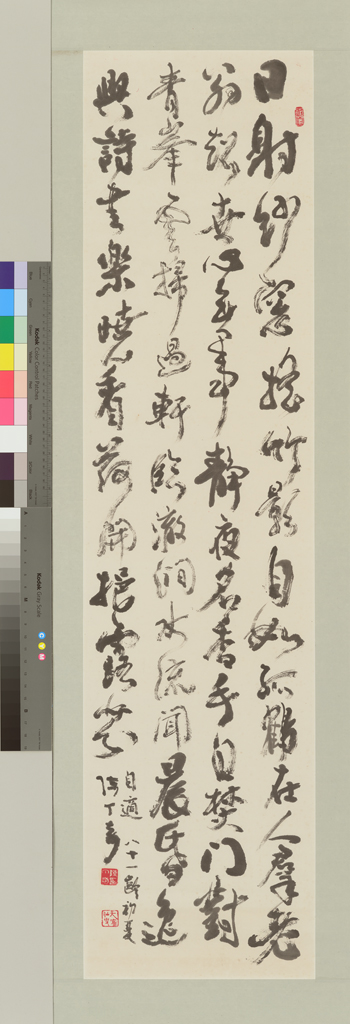 日射紗窗搖竹影自如孤鶴在人群老
翁超世心無事靜夜名香手自焚門對
青峯雲掃過軒臨澈澗水流聞晨昏遠
興詩書樂曉看荷開挹露芬
自適 八十一齡初夏
陳丁奇
Kodak Color Control Patches
Kodak Gray Scale
C
Y
M